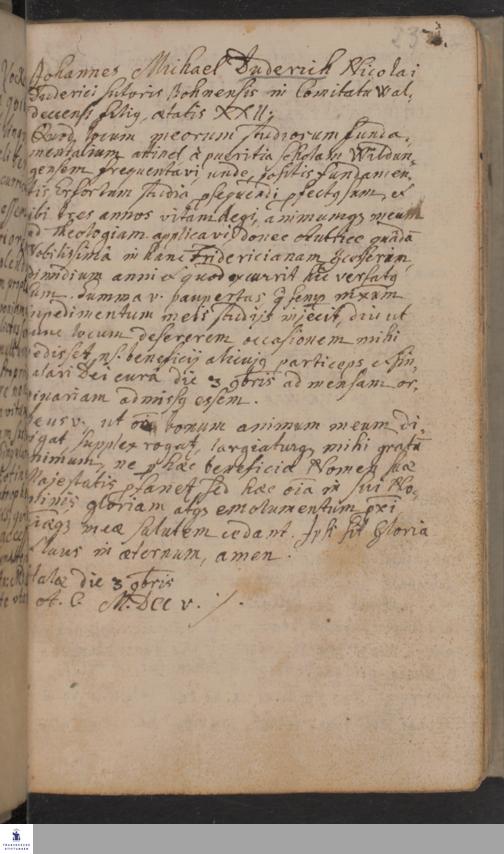 Johannes Michael Duderich Nicolai
Duderici sutoris Bohnensis in Comitatu Wal-
deccensi filiq, ætatis XXII,
Quod locum meorum studiorum funda-
mentalium attinet, à pueritia scholam Wildun-
gensem frequentavi, unde, positis fundamen-
tis Erfortum studia psequendi pfectq sum, et
ibi tres annos vitam degi, animumqz meum
ad Theologiam applicavi, donec
Nobilissima in hanc Fridericianam
dimidium anni et quod excurrit hic versatq
sum. Summa v. paupertas q semp
inpedimentum meis studijs injecit, diu ut
hunc locum desererem occasionem mihi
dedisset, nisi beneficij alicujq particeps et sin-
gulari Dei cura die 3 9bris ad mensam or-
dinariam admissq essem.
Deus v. ut oia bonum animum meum di-
rigat supplex rogat, largiaturqz mihi gratū
animum, ne p hæc beneficia Nomen suæ
Majestatis pfanet, sed hæc oia in sui No-
minis gloriam atqz emolumentum pxi
meæ salutem cedant. sit Gloria
in æternum, amen.
Halæ die 3 9bris
A. C. M.DCC v. /.
FRANCKESCHE
STIFTUNGEN